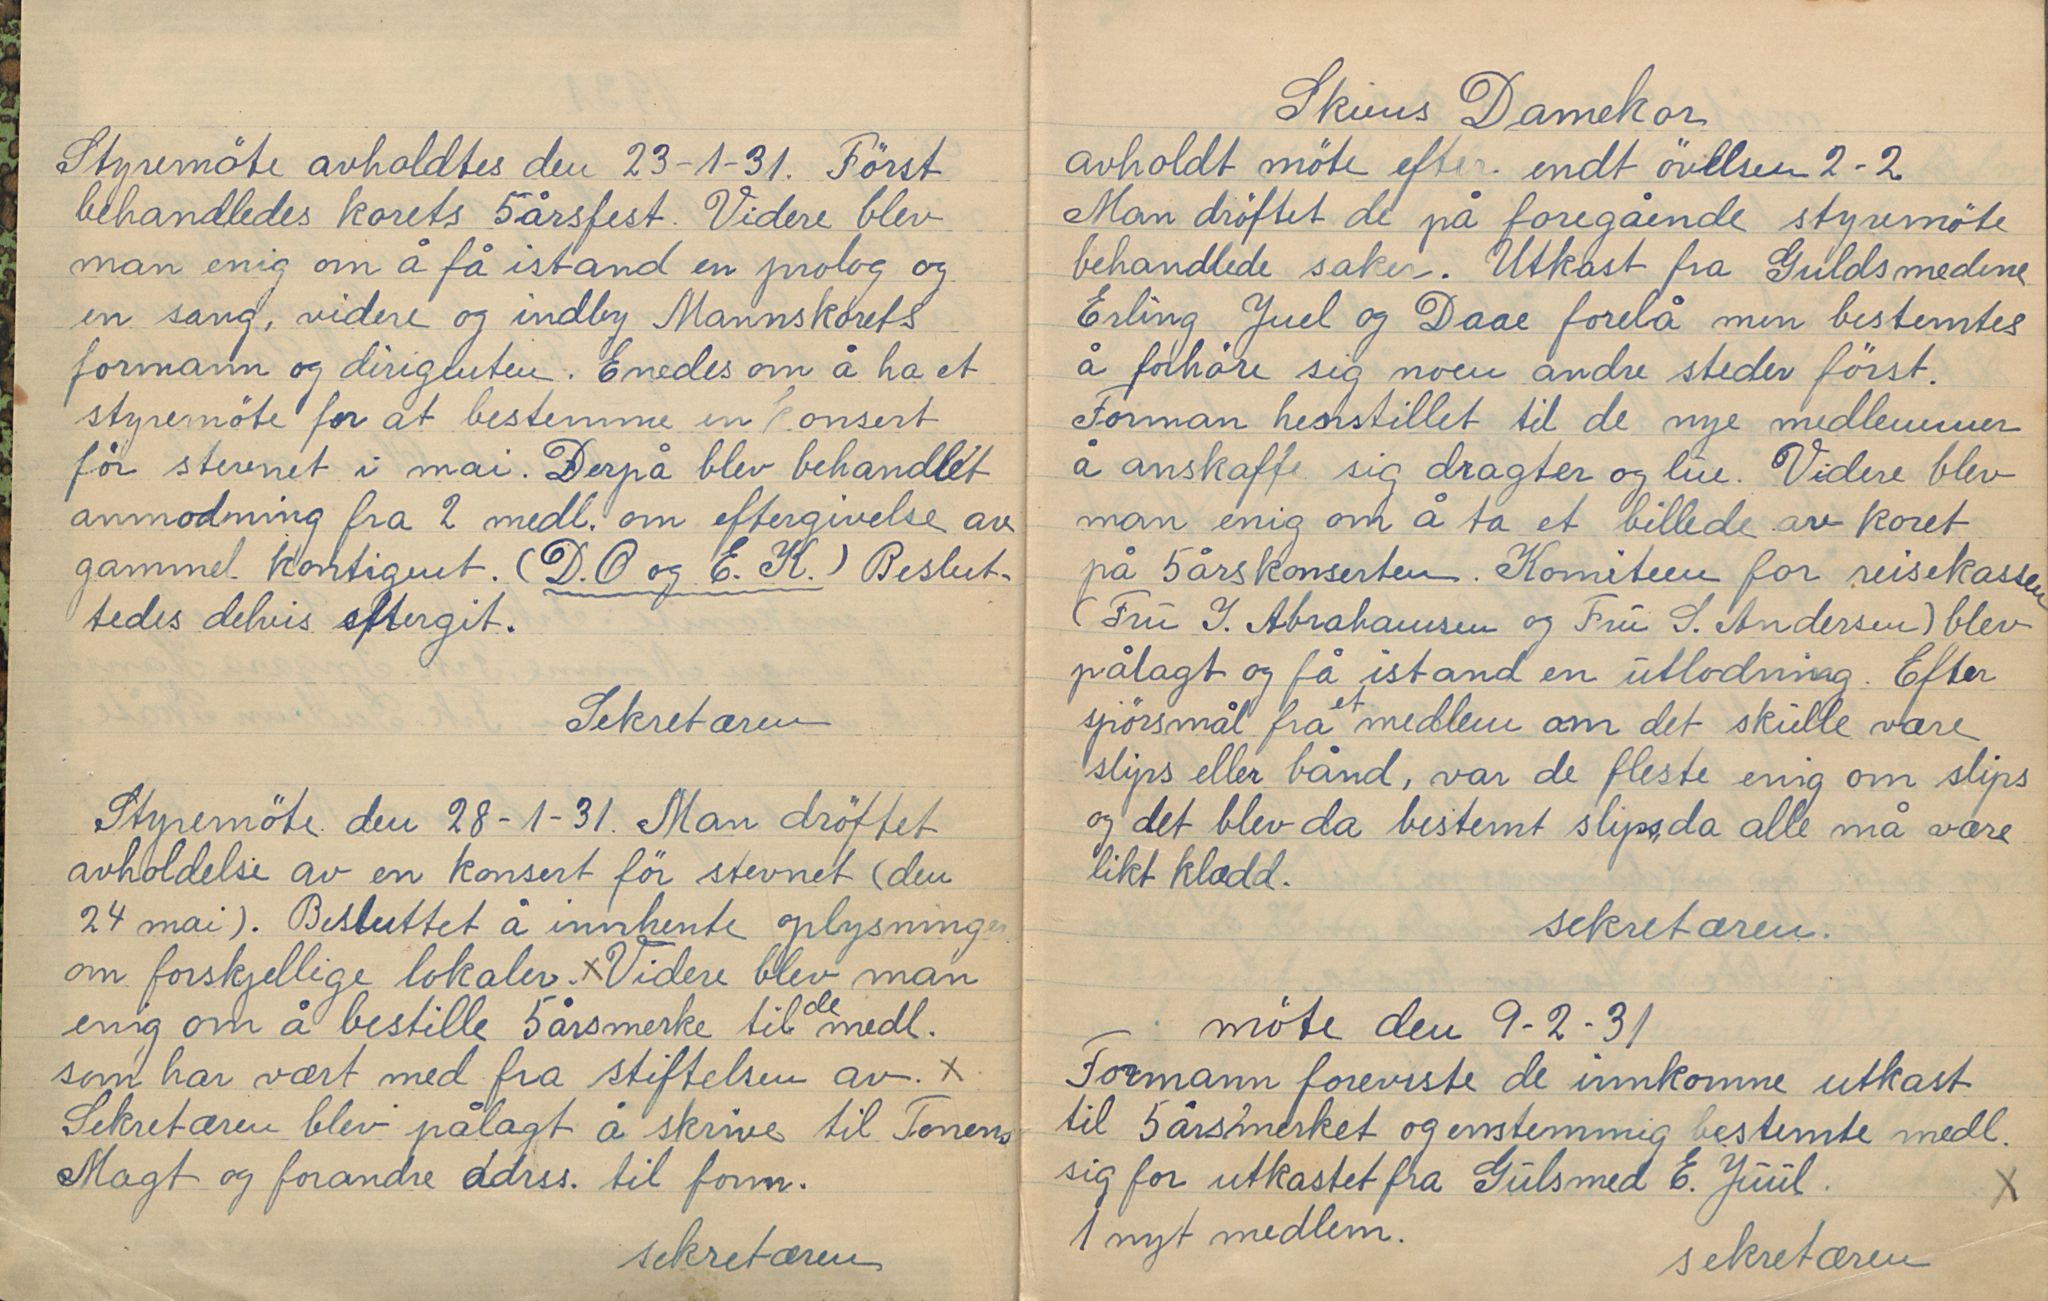 Styremöte avholdtes den 23-1-31. Först
behandledes korets 5årsfest. Videre blev
man enig om å få istand en prolog og
en sang, videre og indby Mannskorets
formann og dirigenten. Enedes om å ha et
styremöte for at bestemme en konsert
för stevnet i mai. Derpå blev behandlet
anmodning fra 2 medl. om eftergivelse av
gammel kontigent. (D.O og E. K.) Beslut-
tedes delvis eftergit.
Sekretæren
Styremöte den 28-1-31. Man dröftet
avholdelse av en konsert för stevnet (den
24 mai). Besluttet å innhente oplysninger
om forskjellige lokaler. x Videre blev man
enig om å bestille 5årsmerke til de medl.
som har vært med fra stiftelsen av. x
Sekretæren blev pålagt å skrive til Tonens
Magt og forandre adrss. til form.
sekretæren
Skiens Damekor
avholdt möte efter endt övelsen 2-2
Man dröftet de på foregående styremöte
behandlede saker. Utkast fra Guldsmedene
Erling Juel og Daae forelå men bestemtes
å forhöre sig noen andre steder först.
Forman henstillet til de nye medlemmer
å anskaffe sig dragter og lue. Videre blev
man enig om å ta et billede av koret
på 5årskonserten. Komiteen for reisekassen
(Fru I. Abrahamsen og Fru S. Andersen) blev
pålagt og få istand en utlodning. Efter
spörsmål fra et medlem om det skulle være
slips eller bånd, var de fleste enig om slips
og det blev da bestemt slips, da alle må være
likt klædd.
sekretæren.
möte den 9-2-31
Formann foreviste de innkomne utkast
til 5årsmerket og enstemmig bestemte medl.
sig for utkastet fra Gulsmed E. Juul. x
1 nyt medlem.
sekretæren